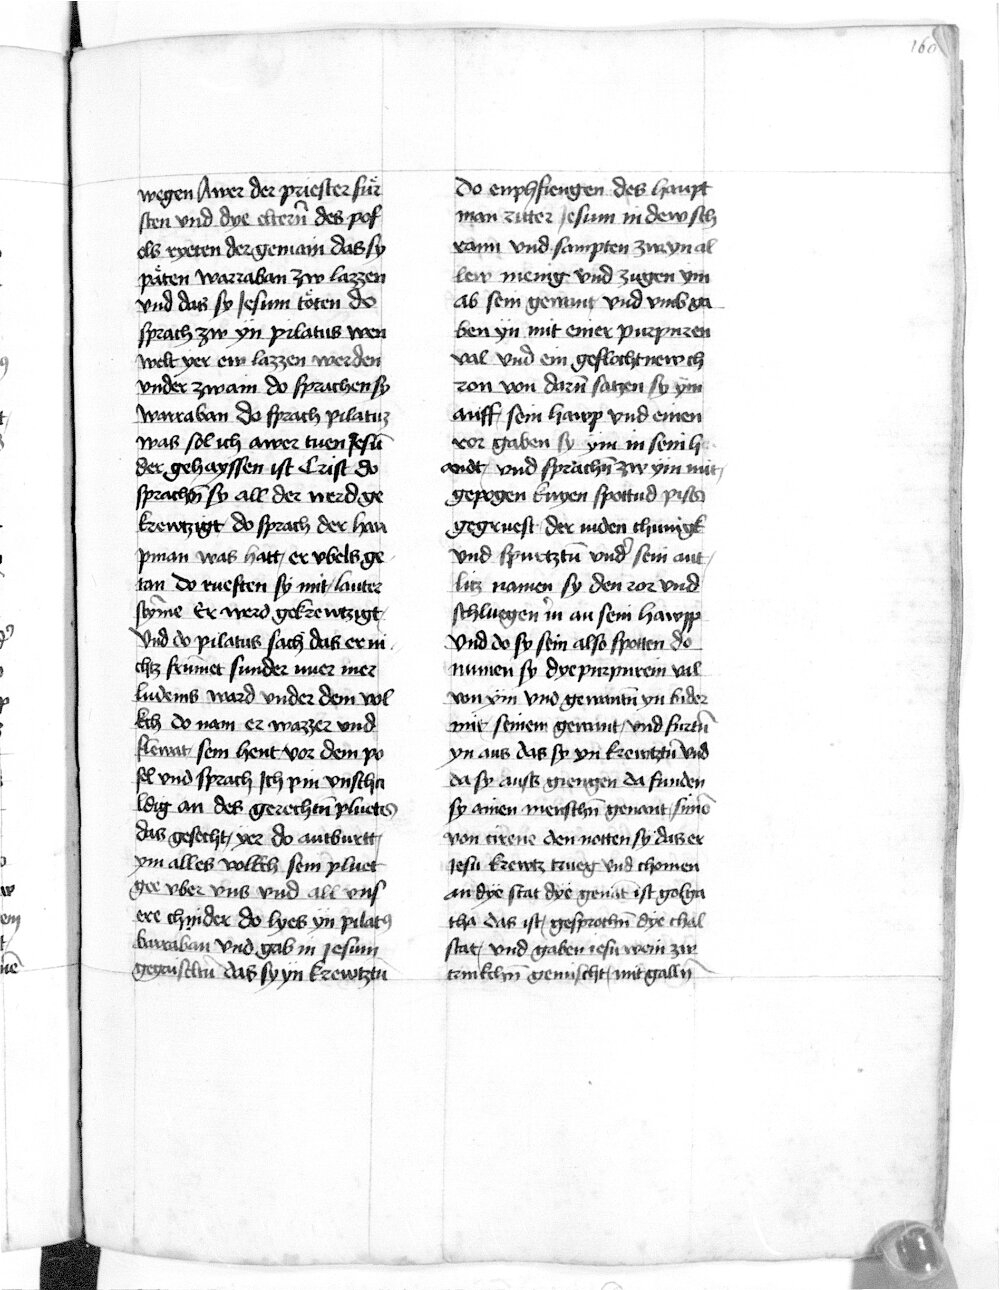 160
wegen Awer der priester für
sten vnd dye elterñ des pof
els ryeten der gemain das sy
päten warraban zw lazzen
vnd das sy Jesum töten do
sprach zw yn pilatus wen
welt yer ew lazzen werden
vnder zwain do sprachen sy
warraban do sprach pilatuz
was sol ich awer tuen Jesū
der gehayssen ist Crist do
sprachn̄ sy all der werd ge
krewtzigt do sprach der hau
pman was hatt er vbels ge
tan do rueften sy mit lauter
stȳme Er werd gekrewtzigt
Vnd do pilatus sach das er ni
chtz frūmet sunder mer
ludems ward vnder dem vol
kch do nam er wazzer vnd
sein hent vor dem po
fel vnd sprach Ich pin vnschu
ldig an des gerechtn̄ pluetes
das gesecht yer do antburtt
ym alles volkch sein pluet
gee vber vns vnd all vns
ere chinder do lyes yn pilatꝰ
barraban vnd gab in jesum
gegaiseltn̄ das sy yn krewtztn̄
Do enphfiengen des haupt
man ritter Jesum in dew sch
rann vnd sampten zw yn al
lew menig vnd zugen ym
ab sein gewant vnd vmbga
ben yn mit einer purpuren
val vnd ein geflochtnew ch
ron von darn̄ satzen sy ym
auff sein hawp vnd einen
ror gaben sy ym in sein h
andt vnd sprachn̄ zw ym mit
gepogen knyen spottud pist
gegruest der iuden chunigk
vnd spurtztn̄ vnd̓ sein ant
litz namen sy den ror vnd
schluegen in an sein hawpp
Vnd do sy sein also spotten do
numen sy dye purpurein val
von ym vnd gewantn̄ yn bider
mit seinem gewant vnd furtn̄
yn aus das sy yn krewtztn̄ vnd
da sy auss giengen da funden
sy ainen menschn̄ genant simō
von cirene den notten sy das er
jesu krewtz trueg vnd chomen
an dye stat dye genāt ist golga
tha das ist gesprochn̄ dye chal
stat vnd gaben iesu wein zw
trinkchn̄ gemischt mit galln̄